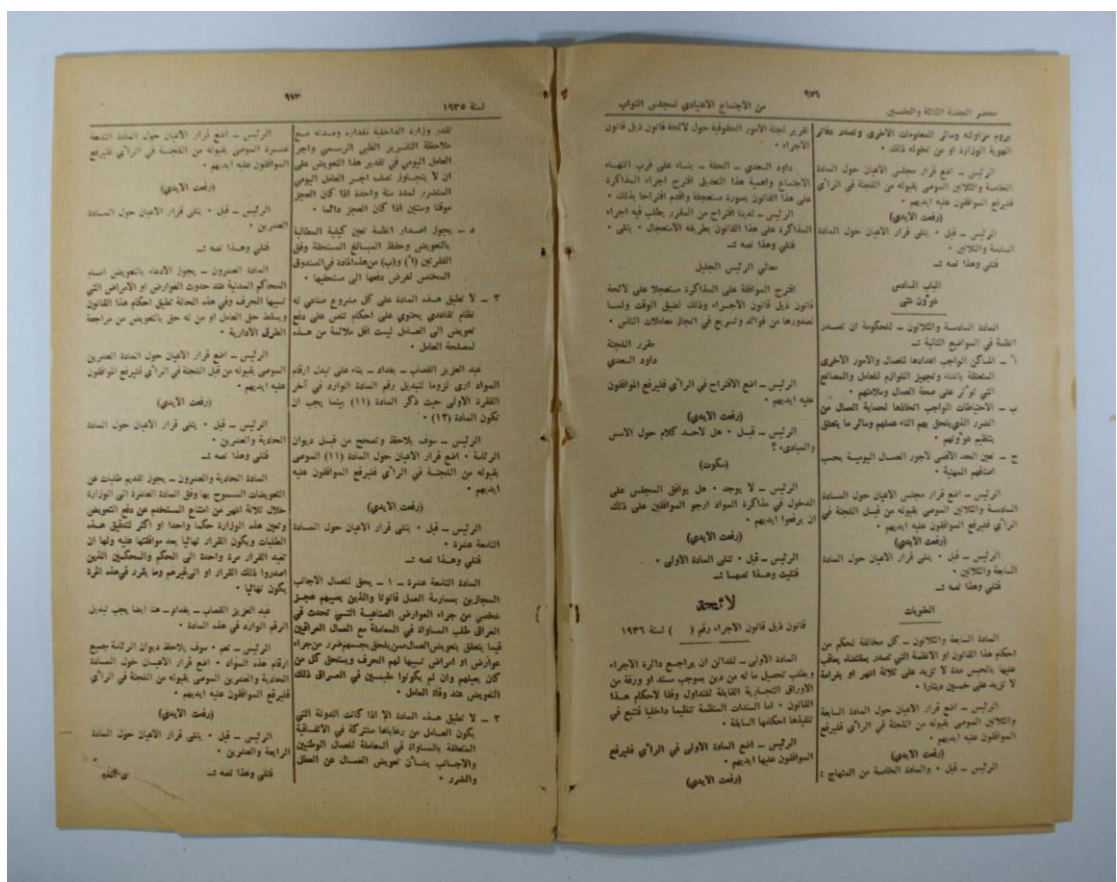 ٩٧٦
محضر الجلسة الثالثة والخمسين
من الاجتماع الاعتيادي لمجلس النواب
يروم مزاولته وسائر المعلومات الاخرى وتصدر دفاتر
الهوية الوزارة او من تخوله ذلك ٠
الرئيس ــ اضع قرار مجلس الاعيان حول المادة
الخامسة والثلاثين الموصى بقبوله من اللجنة في الرأي
فليرفع الموافقون عليه ايديهم ٠
(رفعت الايدي)
الرئيس ــ قبل ٠ يتلى قرار الاعيان حول المادة
السادسة والثلاثين ٠
فتلي وهذا نصه :ــ
الباب السادس
شؤون شتى
المادة السادسة والثلاثون ــ للحكومة ان تصدر
انظمة في المواضيع التالية :ــ
أ ــ المساكن الواجب اعدادها للعمال والأمور الاخرى
المتعلقة بانشاء وتجهيز اللوازم للعامل والمصانع
التي تؤثر على صحة العمال وسلامتهم ٠
ب ــ الاحتياطات الواجب اتخاذها لحماية العمال من
الضرر الذي يلحق بهم اثناء عملهم وسائر ما يتعلق
بتنظيم شؤونهم ٠
ج ــ تعين الحد الاقصى لاجور العمال اليومية بحسب
اصنافهم المهنية ٠
الرئيس ــ اضع قرار مجلس الاعيان حول المادة
السادسة والثلاثين الموصى بقبوله من قبل اللجنة في
الرأي فليرفع الموافقون عليه ايديهم ٠
(رفعت الايدي)
الرئيس ــ قبل ٠ يتلى قرار الاعيان حول المادة
السابعة والثلاثين ٠
فتلي وهذا نصه :ــ
العقوبات
المادة السابعة والثلاثون ــ كل مخالفة لحكم من
احكام هذا القانون او الانظمة التي تصدر بمقتضاه يعاقب
عليها بالحبس مدة لا تزيد على ثلاثة اشهر او بغرامة
لا تزيد على خمسين دينارا ٠
الرئيس ــ اضع قرار الاعيان حول المادة السابعة
والثلاثين الموصى بقبوله من اللجنة في الرأي فليرفع
الموافقون عليه ايديهم ٠
(رفعت الايدي)
الرئيس ــ قبل ٠ والمادة الخامسة من المنهاج :
تقرير لجنة الامور الحقوقية حول لائحة قانون ذيل قانون
الاجراء ٠
داود السعدي ــ الحلة ــ بناء على قرب انتهاء
الاجتماع واهمية هذا التعديل اقترح اجراء المذاكرة
على هذا القانون بصورة مستعجلة واقدم اقتراحا بذلك ٠
الرئيس ــ لدينا اقتراح من المقرر يطلب فيه اجراء
المذاكرة على هذا القانون بطريقة الاستعجال ٠ يتلى ٠
فتلي وهذا نصه :ــ
معالي الرئيس الجليل
اقترح الموافقة على المذاكرة مستعجلا على لائحة
قانون ذيل قانون الاجراء وذلك لضيق الوقت ولما
لصدورها من فوائد وتسريع في انجاز معاملات الناس ٠
مقرر اللجنة
داود السعدي
الرئيس ــ اضع الاقتراح في الرأي فليرفع الموافقون
عليه ايديهم ٠
(رفعت الايدي)
الرئيس ــ قبل ٠ هل لاحد كلام حول الاسس
والمبادىء ؟
(سكوت)
الرئيس ــ لا يوجد ٠ هل يوافق المجلس على
الدخول في مذاكرة المواد ارجو الموافقين على ذلك
ان يرفعوا ايديهم ٠
(رفعت الايدي)
الرئيس ــ قبل ٠ تتلى المادة الاولى ٠
فتليت وهذا نصها :ــ
لائحة
قانون ذيل قانون الاجراء رقم ( ) لسنة ١٩٣٦
المادة الاولى ــ للدائن ان يراجع دائرة الاجراء
ويطلب تحصيل ما له من دين بموجب سند او ورقة من
الاوراق التجارية القابلة للتداول وفقا لاحكام هذا
القانون ٠ اما السندات المنظمة تنظيما داخليا فتتبع في
تنفيذها احكامها السابقة ٠
الرئيس ــ اضع المادة الاولى في الرأي فليرفع
الموافقون عليها ايديهم ٠
(رفعت الايدي)
٩٧٣
لسنة ١٩٣٥
تقدر وزارة الداخلية مقداره ومدته مع
ملاحظة التقرير الطبي الرسمي واجر
العامل اليومي في تقدير هذا التعويض على
ان لا يتجاوز نصف اجر العامل اليومي
المتضرر لمدة سنة واحدة اذا كان العجز
موقتا وسنتين اذا كان العجز دائما ٠
د ــ يجوز اصدار انظمة تعين كيفية المطالبة
بالتعويض وحفظ المبالغ المستحقة وفق
الفقرتين (أ) و(ب) من هذه المادة في الصندوق
المختص لغرض دفعها الى مستحقيها ٠
٣ ــ لا تطبق هذه المادة على كل مشروع صناعي له
نظام تقاعدي يحتوي على احكام تنص على دفع
تعويض الى العامل ليست اقل ملائمة من هذه
لمصلحة العامل ٠
عبد العزيز القصاب ــ بغداد ــ بناء على تبدل ارقام
المواد ارى لزوما لتبديل رقم المادة الوارد في آخر
الفقرة الاولى حيث ذكر المادة (١١) بينما يجب ان
تكون المادة (١٣) ٠
الرئيس ــ سوف يلاحظ وتصحح من قبل ديوان
الرئاسة ٠ اضع قرار الاعيان حول المادة (١١) الموصى
بقبوله من اللجنة في الرأي فليرفع الموافقون عليه
ايديهم ٠
(رفعت الايدي)
الرئيس ــ قبل ٠ يتلى قرار الاعيان حول المادة
التاسعة عشرة ٠
فتلي وهذا نصه :ــ
المادة التاسعة عشرة ــ ١ ــ يحق للعمال الاجانب
المجازين بممارسة العمل قانونا والذين يصيبهم عجز
شخصي من جراء العوارض الصناعية التي تحدث في
العراق طلب المساواة في المعاملة مع العمال العراقيين
فيما يتعلق بتعويض العمال ممن يلحق بجسمهم ضرر من جراء
عوارض او امراض تسببها لهم الحرف ويستحق كل من
كان يعيلهم وان لم يكونوا مقيمين في العراق ذلك
التعويض عند وفاة العامل ٠
٢ ــ لا تطبق هذه المادة الا اذا كانت الدولة التي
يكون العامل من رعاياها مشتركة في الاتفاقية
المتعلقة بالمساواة في المعاملة للعمال الوطنيين
والاجانب بشأن تعويض العمال عن العطل
والضرر ٠
الرئيس ــ اضع قرار الاعيان حول المادة التاسعة
عشرة الموصى بقبوله من اللجنة في الرأي فليرفع
الموافقون عليه ايديهم ٠
(رفعت الايدي)
الرئيس ــ قبل ٠ يتلى قرار الاعيان حول المادة
العشرين ٠
فتلي وهذا نصه :ــ
المادة العشرون ــ يجوز الادعاء بالتعويض امام
المحاكم المدنية عند حدوث العوارض او الامراض التي
تسببها الحرف وفي هذه الحالة تطبق احكام هذا القانون
ويسقط حق العامل او من له حق بالتعويض من مراجعة
الطرق الادارية ٠
الرئيس ــ اضع قرار الاعيان حول المادة العشرين
الموصى بقبوله من قبل اللجنة في الرأي فليرفع الموافقون
عليه ايديهم ٠
(رفعت الايدي)
الرئيس ــ قبل ٠ يتلى قرار الاعيان حول المادة
الحادية والعشرين ٠
فتلي وهذا نصه :ــ
المادة الحادية والعشرون ــ يجوز تقديم طلبات عن
التعويضات المسموح بها وفق المادة العاشرة الى الوزارة
خلال ثلاثة اشهر من امتناع المستخدم عن دفع التعويض
وتعين هذه الوزارة حكما واحدا او اكثر لتدقيق هذه
الطلبات ويكون القرار نهائيا بعد موافقتها عليه ولها ان
تعيد القرار مرة واحدة الى الحكم والمحكمين الذين
اصدروا ذلك القرار او الى غيرهم وما يقرر في هذه المرة
يكون نهائيا ٠
عبد العزيز القصاب ــ بغداد ــ هنا ايضا يجب تبديل
الرقم الوارد في هذه المادة ٠
الرئيس ــ نعم ٠ سوف يلاحظ ديوان الرئاسة جميع
ارقام هذه المواد ٠ اضع قرار الاعيان حول المادة
الحادية والعشرين الموصى بقبوله من اللجنة في الرأي
فليرفع الموافقون عليه ايديهم ٠
(رفعت الايدي)
الرئيس ــ قبل ٠ يتلى قرار الاعيان حول المادة
الرابعة والعشرين ٠
فتلي وهذا نصه :ــ